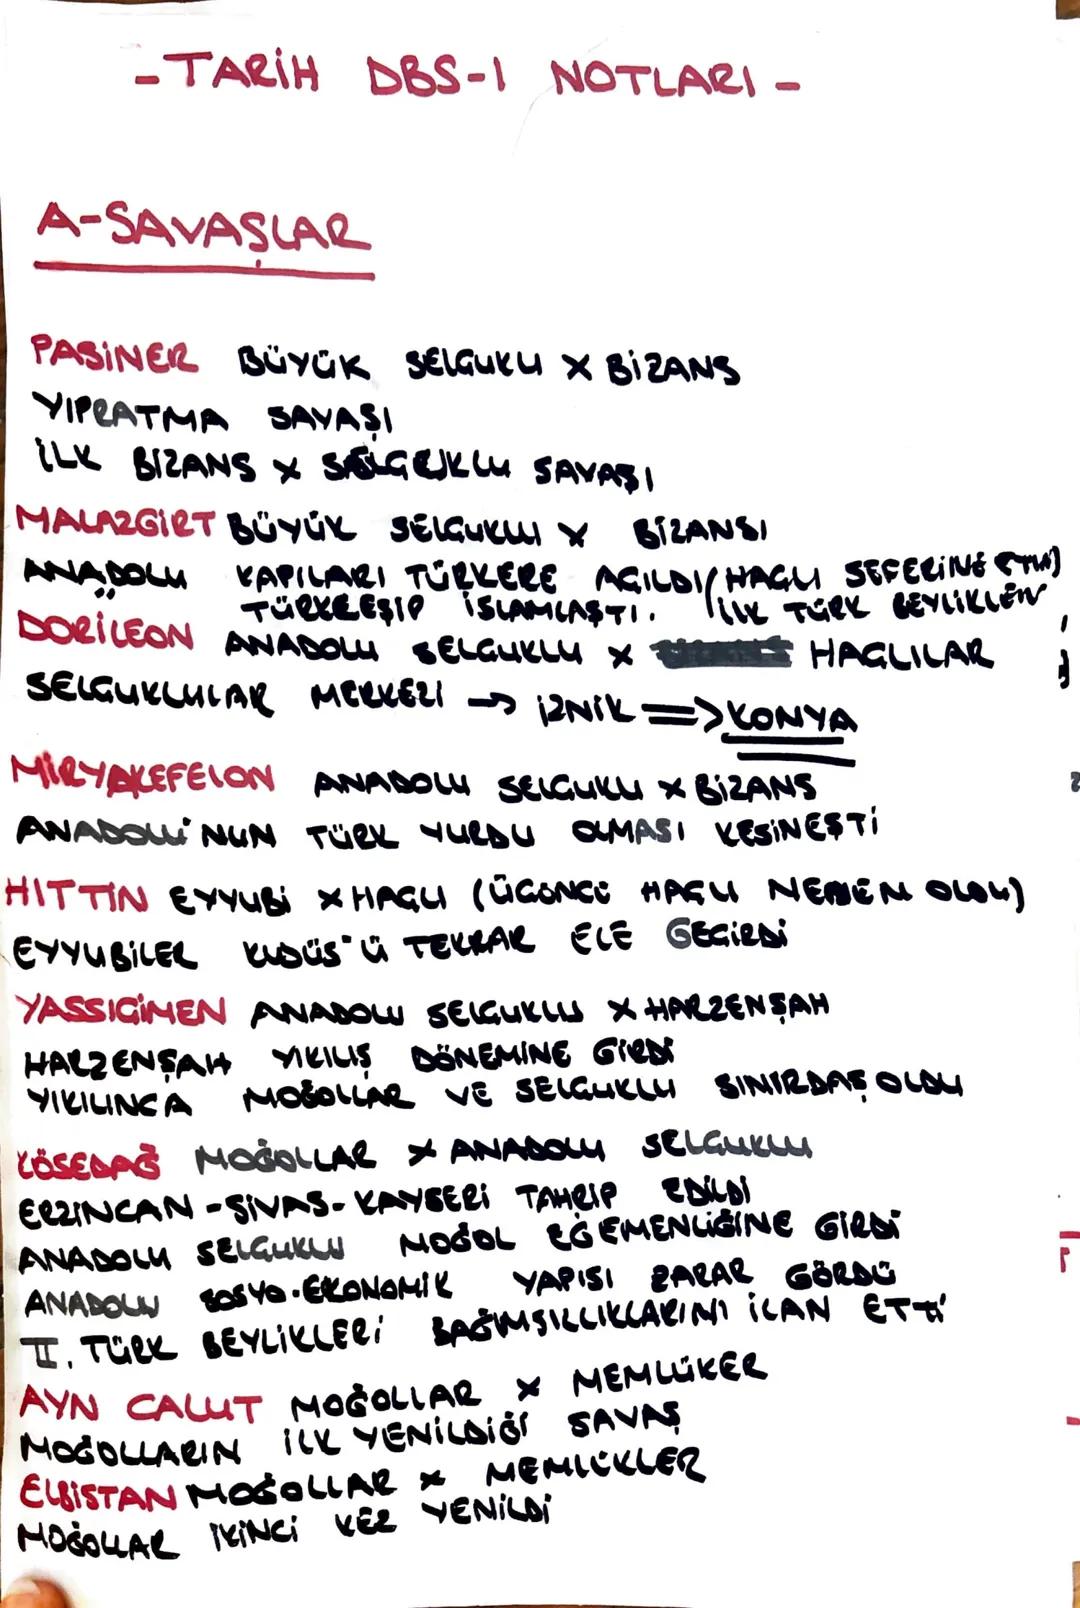 -TARİH DBS-1 NOTLARI-
A-SAVAŞLAR
PASİNER BÜYÜK SELGUKU X BİZANS
YIPRATMA SAVAŞI
İLK BİZANS X SELGUKLU SAVAŞI
MALAZGİRT BÜYÜK SELGUKLU X BİZANSI
ANADOLU KAPILARI TÜRKERE AGILDI/HAGLI SEFERİNE
TÜRKLEŞİP İSLAMLAŞTI. İLK TÜRK BEYLİKLERİ
DORİLEON ANADOLU SELGUKLU X HAGLILAR
SELGUKLULAR MERKEZİ → İZNİK => KONYA
MİRYAKEFELON ANADOLU SELGUKLU X BİZANS
ANADOLU'NUN TÜRK YURDU OLMASI KESİNEŞTİ
HITTIN EYYUBİ X HAGLI (ÜGÜNCÜ HAGLI NEDEN OLDU)
EYYUBİLER KUDÜS'Ü TEKRAR ELE GEGİRDİ
YASSIGİMEN ANADOLU SELGUKLU X HARZENŞAH
HARZENŞAH YIKILIŞ DÖNEMİNE GİRDİ
YIKILINCA MOĞOLLAR VE SELGUKLU SINIRDAŞ OLDU
KÖSEDAĞ MOĞOLLAR X ANADOLU SELGUKLU
ERZİNCAN-SİVAS-KAYSERİ TAHRİP EDİLDİ
ANADOLU SELGUKLU MOĞOL EGEMENLİĞİNE GİRDİ
ANADOLU SOSYO-EKONOMİK YAPISI ZARAR GÖRDÜ
II. TÜRK BEYLİKLERİ BAĞIMSILLIKLARINI İLAN ETTİ
AYN CALUT MOĞOLLAR X MEMLÜKER
MOĞOLLARIN İLK YENİLDİĞİ SAVAŞ
ELBİSTAN MOĞOLLAR X MEMLÜKLER
MOĞOLLAR İKİNCİ KEZ YENİLDİ